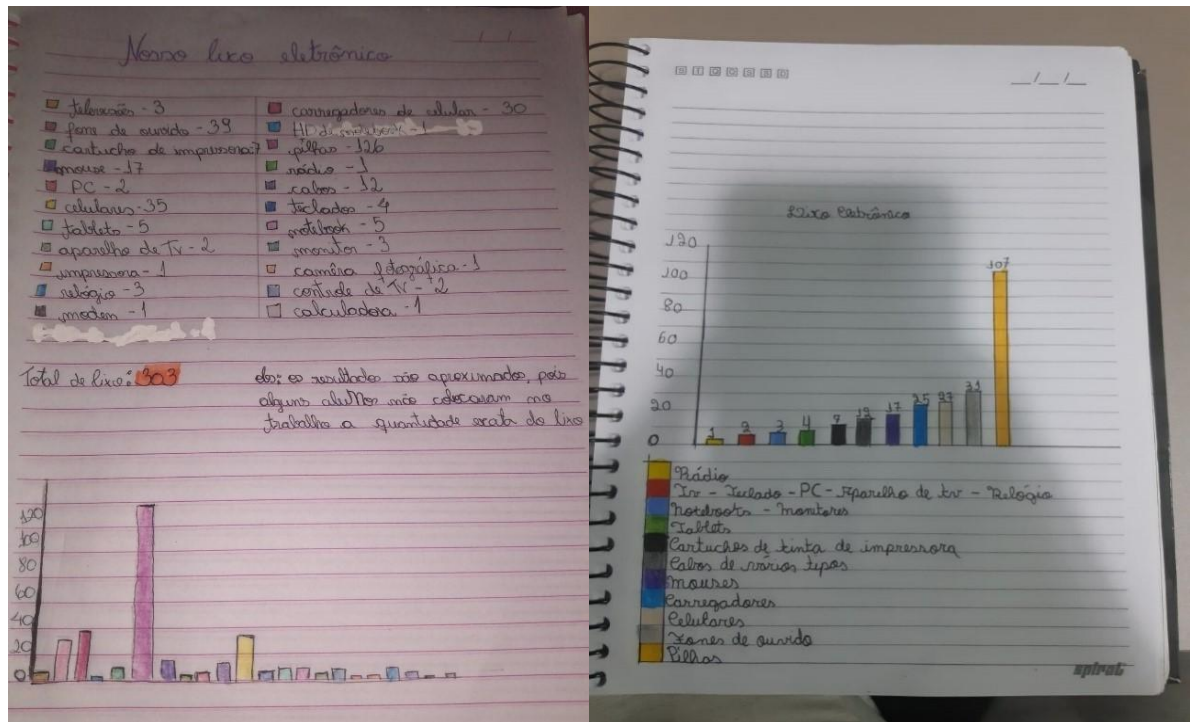 Nosso lixo eletrônico
televisão - 3
fone de ouvido - 39
cartucho de impressora: 7
mouse - 17
PC - 2
celulares - 35
tablets - 5
aparelho de TV - 2
impressora - 1
relógio - 3
modem - 1
carregadores de celular - 30
HD de notebook - 1
pilhas - 126
rádio - 1
cabos - 12
teclados - 4
notebook - 5
monitor - 3
camêra fotográfica - 1
controle de TV - 2
calculadora - 1
Total de lixo: 303
obs: os resultados são aproximados, pois
alguns alunos não colocaram no
trabalho a quantidade exata do lixo
120
100
80
60
40
20
0
S T Q Q S S D
__/__/__
Lixo Eletrônico
120
100
80
60
40
20
0
1 2 3 4 7 12 17 25 27 31 107
Rádio
Tv - Teclado - PC - Aparelho de tv - Relógio
Notebooks - Monitores
Tablets
Cartuchos de tinta de impressora
Cabos de vários tipos
Mouses
Carregadores
Celulares
Fones de ouvido
Pilhas
spiral